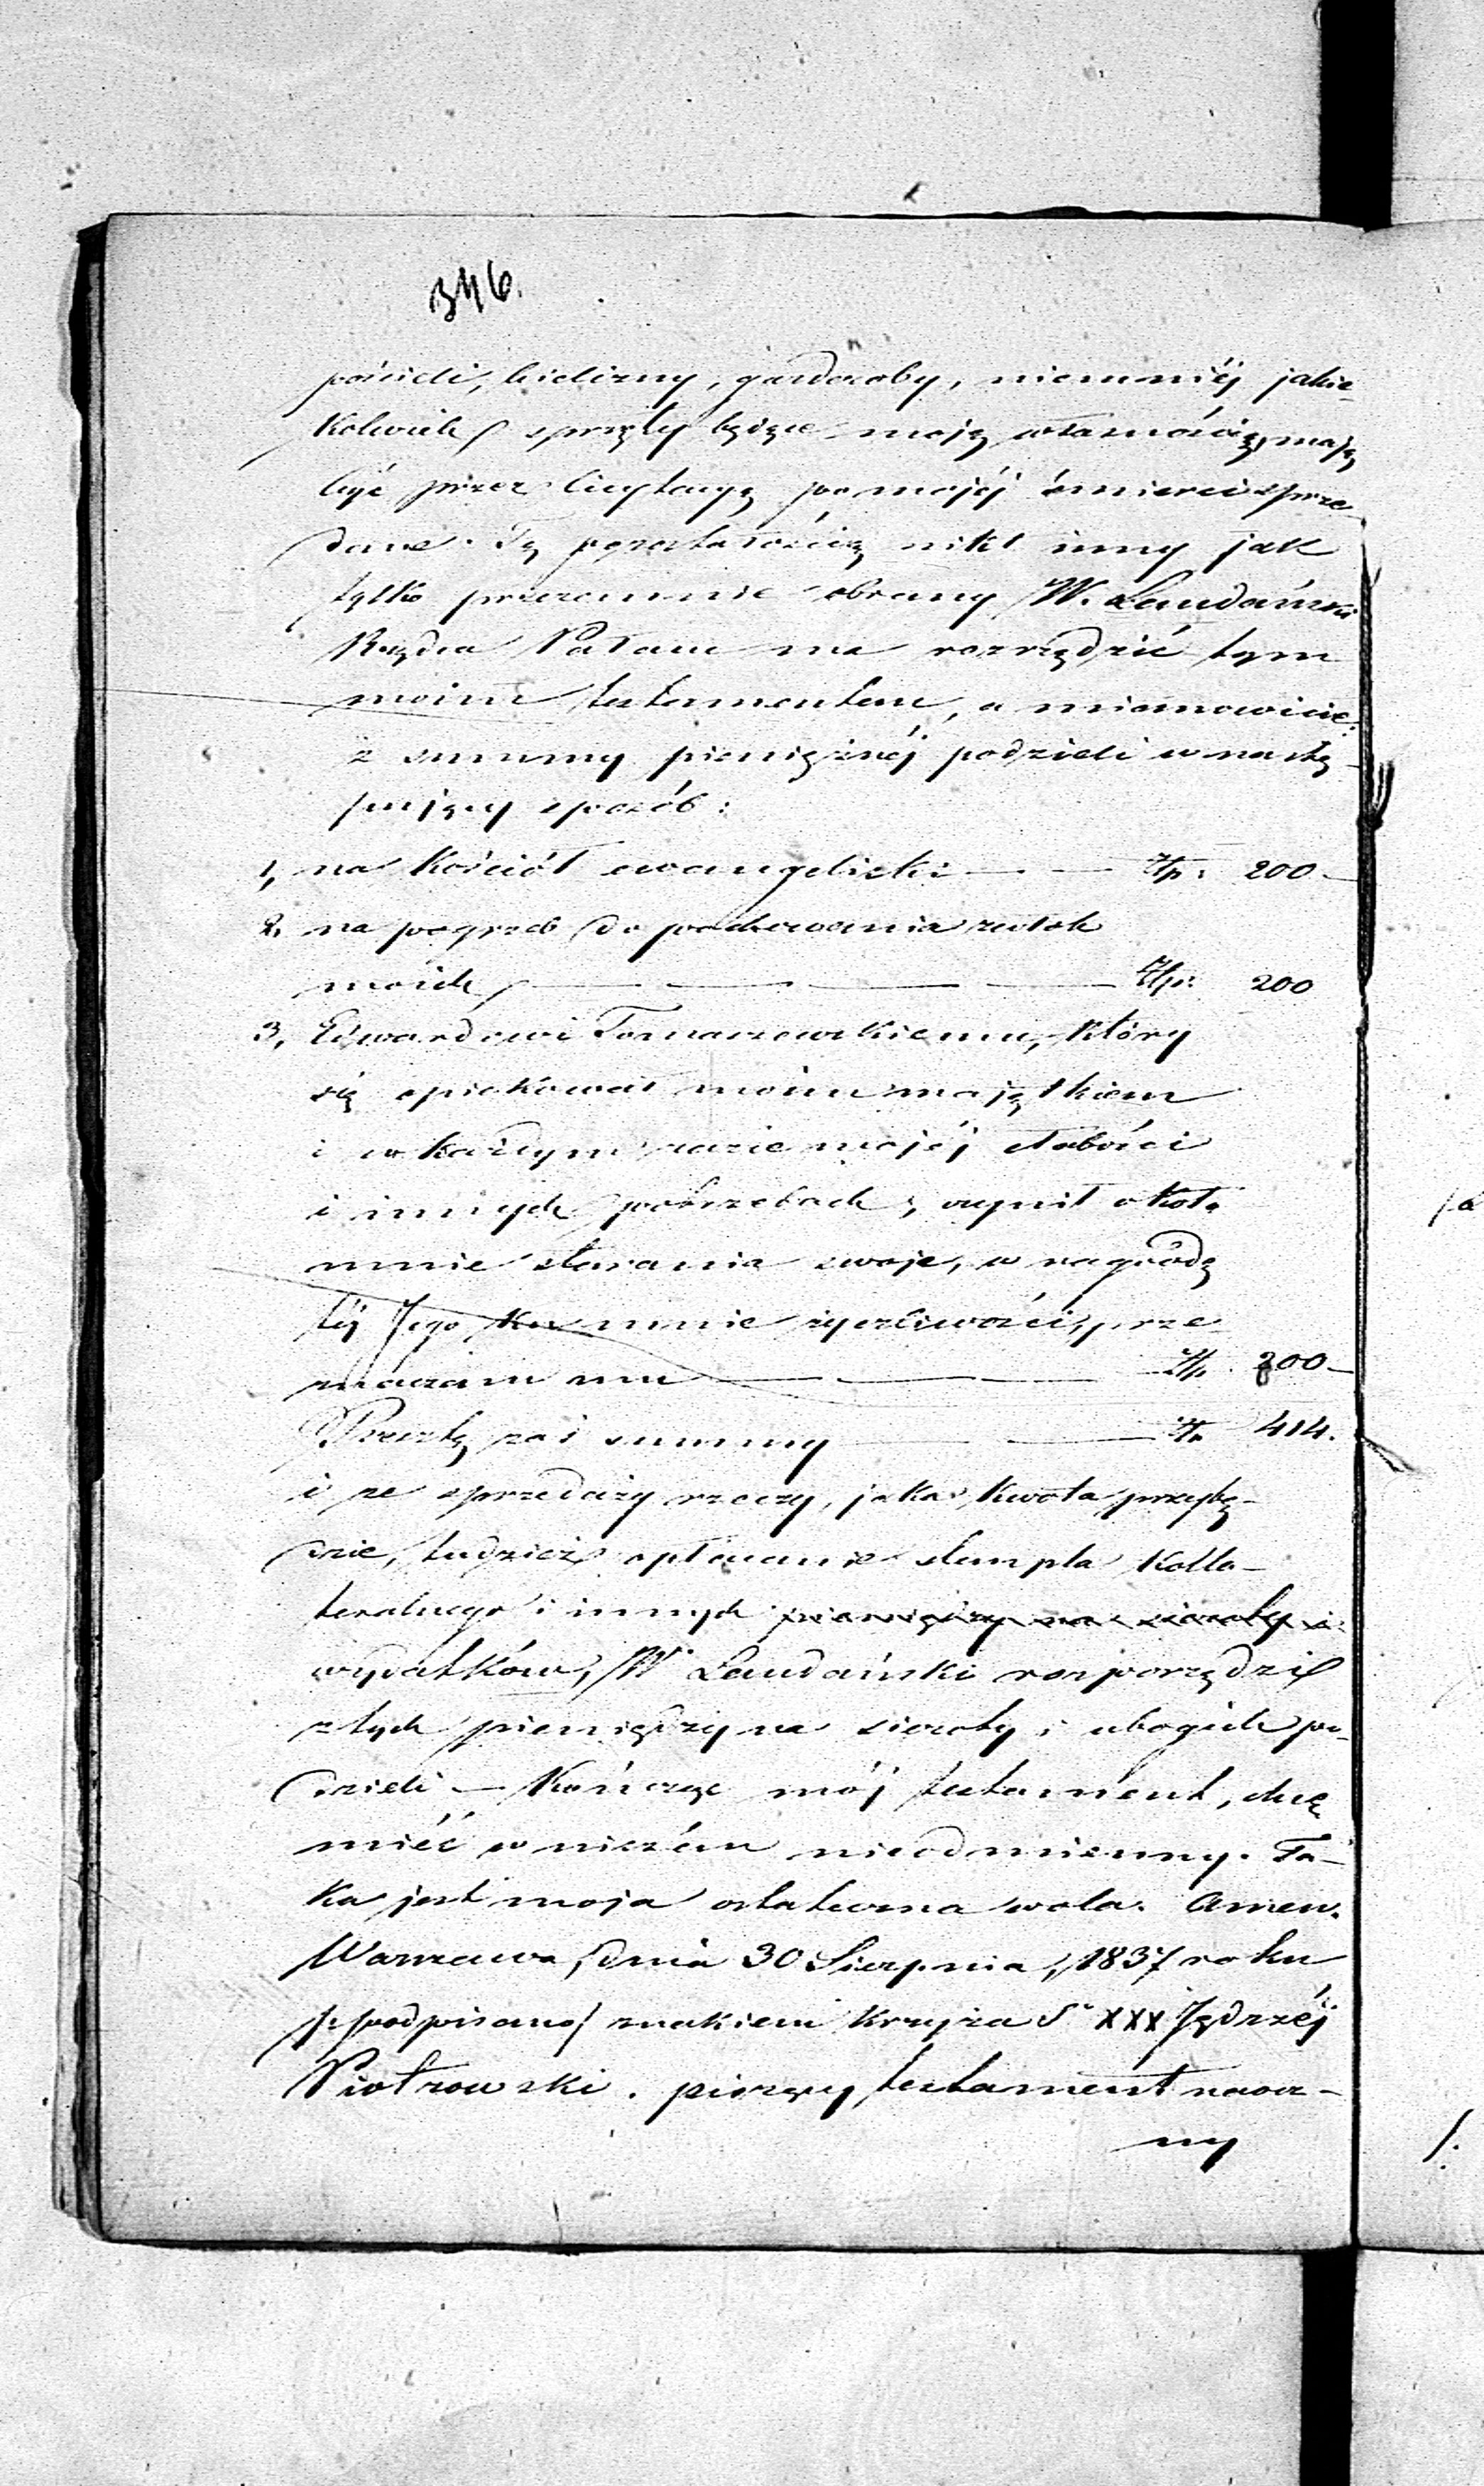 346.
pościeli, bielizny, garderoby, niemniéj jakie-
kolwiek sprzęty będące moją własnością, mają
być przez licytacyą po mojéj śmierci sprze
dane. Tą pozostałością nikt inny jak
tylko przezemnie obrany W. Laudański
Rządca Pałacu ma rozrządzić tym
moim testamentem, a mianowicie:
z summy pieniężnéj podzieli w nastę-
pujący sposób:
1, na Kościół ewangelicki — — Złp. 200 —
2, na pogrzeb do pochowania zwłok
moich — — — — Złp. 200
3, Edwardowi Tomaszewskiemu, który
się opiekował moim majątkiem
i w każdym razie mojéj słabości
i innych potrzebach, czynił około
mnie starania swoje, w nagrodę
téj Jego ku mnie życzliwości, prze-
znaczam mu — — — Złp. 200 —
Resztę zaś summy — — Złp. 414.
i ze sprzedaży rzeczy, jaka kwota przybę-
dzie, tudzież opłacanie stempla Kolla-
teralnego i innych pieniędzy na sieroty i
wydatków, W. Laudański rozporządzi
z tych pieniędzy na sieroty i ubogich po-
dzieli — Kończąc mój testament, chcę
miéć w niczém nieodmienny. Ta-
ka jest moja ostateczna wola. Amen.
Warszawa, dnia 30 Sierpnia, 1837 roku
/:podpisano/ znakiem Krzyża S. XXX Jędrzéj
Piotrowski. piszący testament naocz-
ny